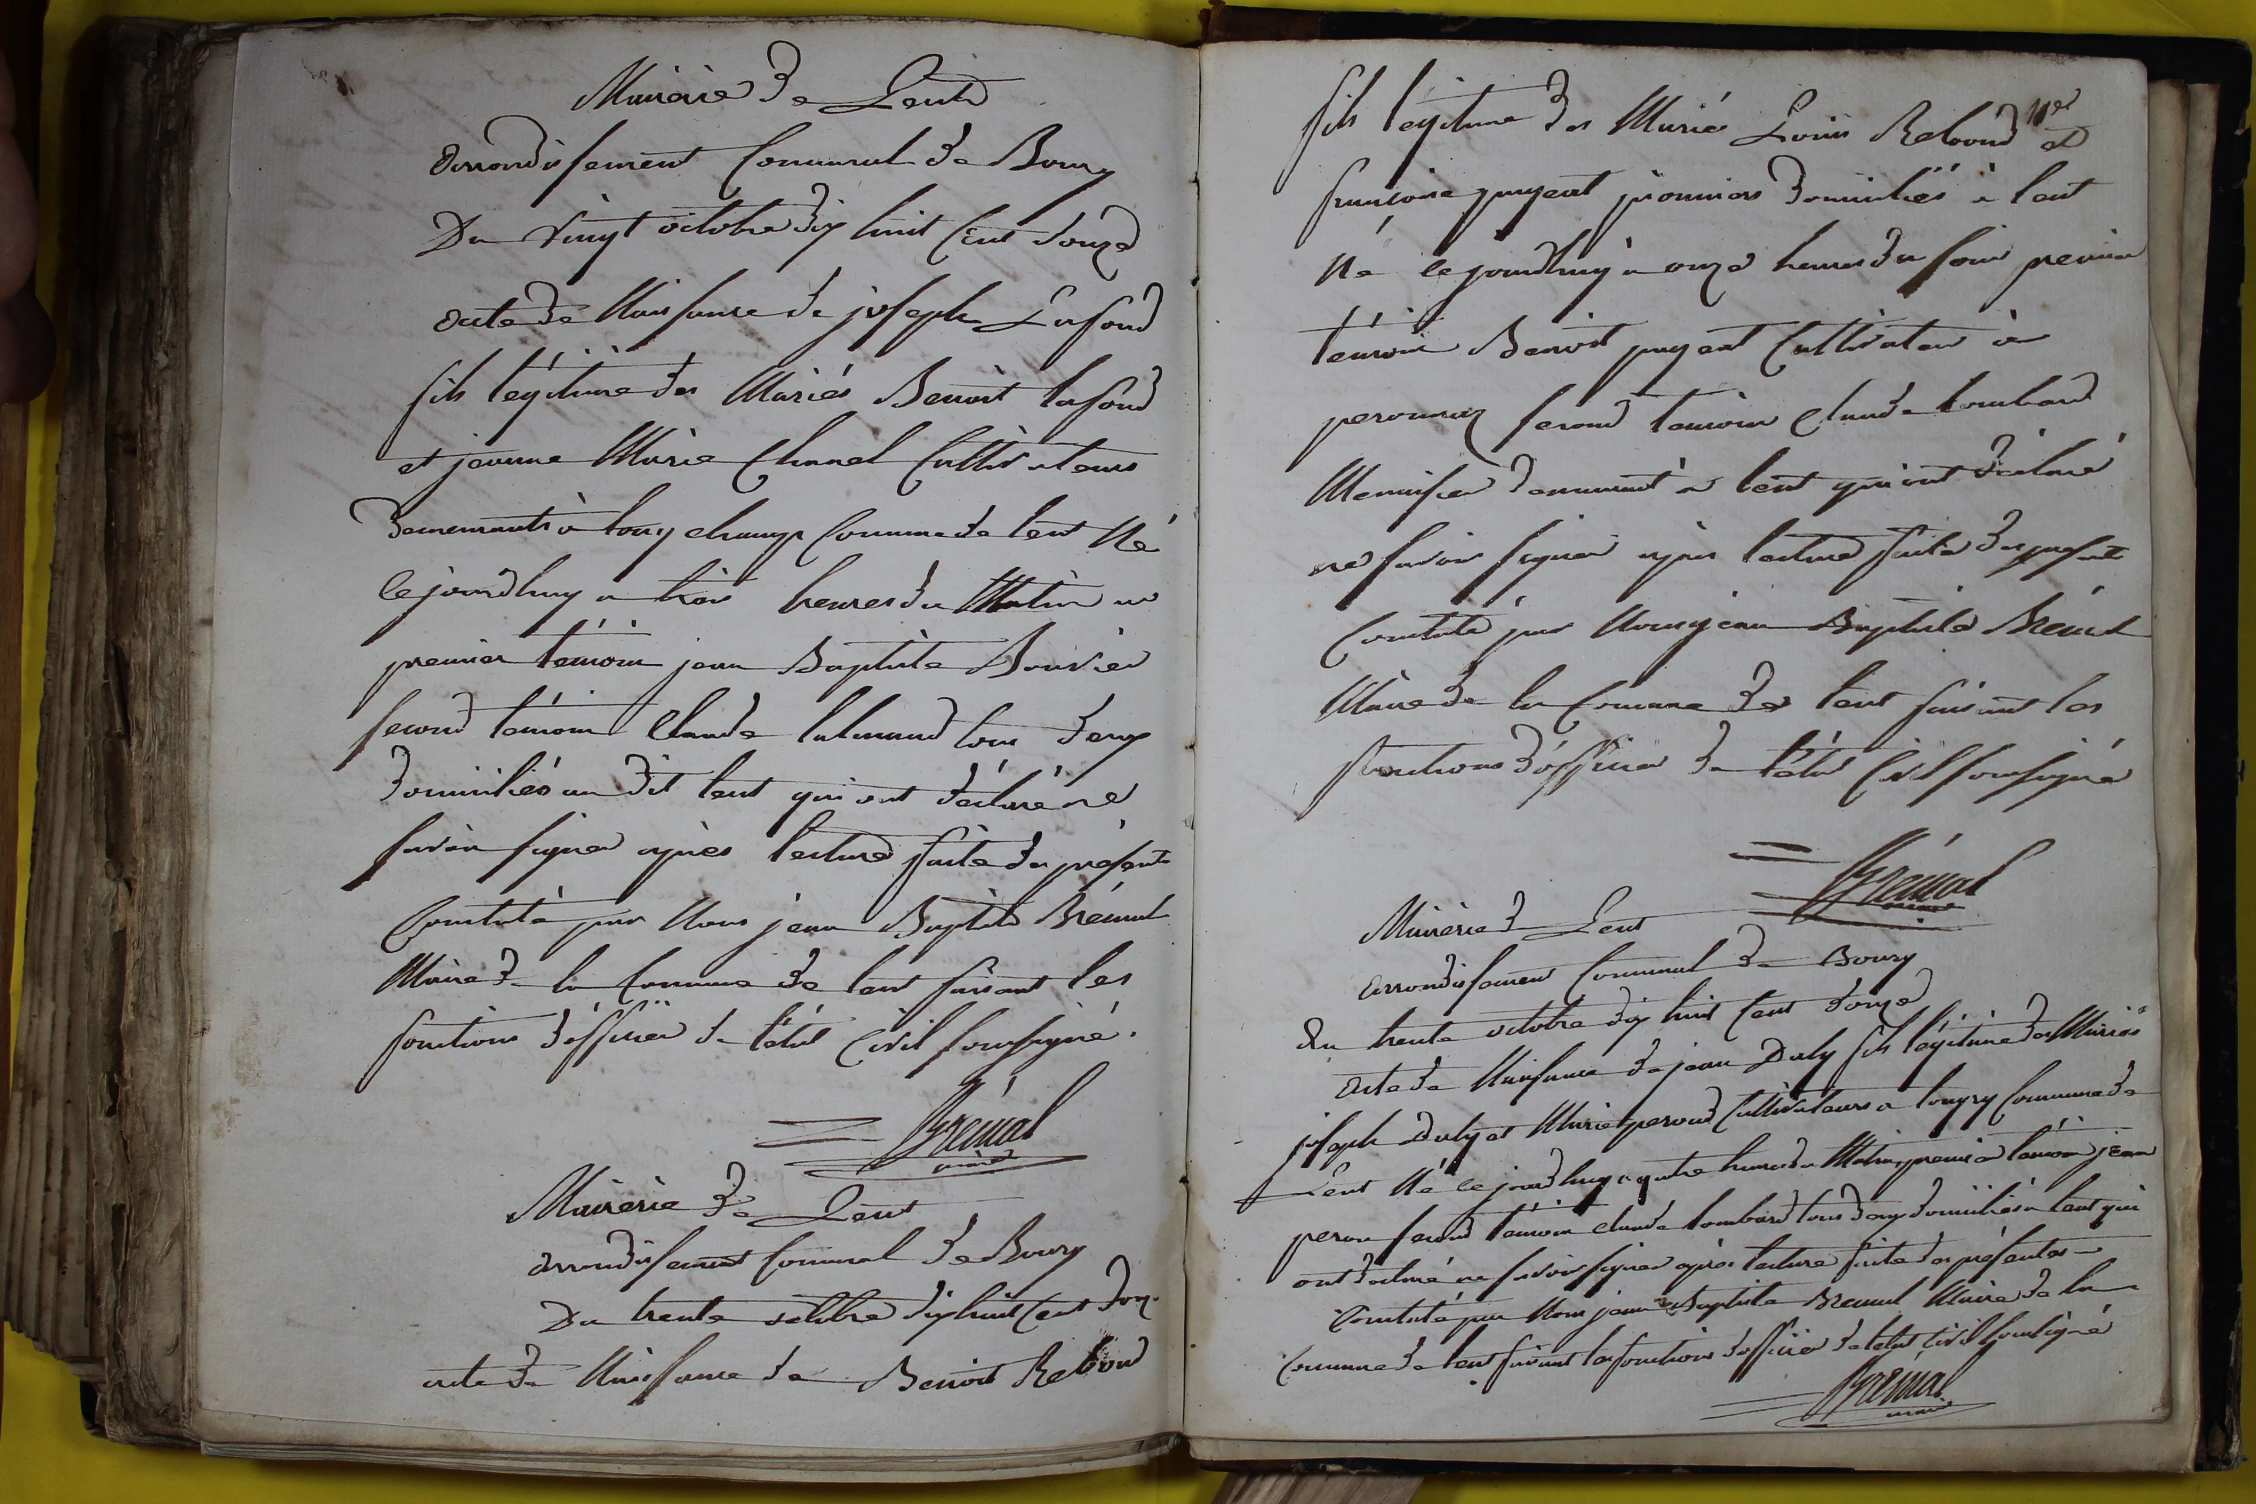 Mairerie de Lent
Arrondissement Communal de Bourg
Du vingt octobre dix huit Cent douze
acte de Naissance de joseph Lafond
fils légitime des Mariés Benoit lafond
et jeanne Marie Chanel Cultivateurs
demeurants à long champ Commune de lent Né
le jourdhuy a trois heures du Matin
premier témoin jean Baptiste Bouvier
second témoin Claude lalmand tous deux
domiciliés au dit lent qui ont déclaré ne
savoir signer après lecture faite des présentes
Constaté par Nous jean Baptiste Brémal
Maire de la Commune de lent faisant les
fonctions d'officier de l'état Civil soussigné.
Brémal
maire
Mairerie de Lent
arrondissement Communal de Bourg
Du trente octobre dix huit Cent douz.
acte de Naissance de Benoit Rebond
fils légitime des Mariés Louis Rebond et
françoise pugeat journiers domiciliés à lent
Né le jourdhuy a onze heures du soir premier
témoin Benoit pugeat Cultivateur à
peronnaz second témoin Claude lombard
Menuisier demeurant à lent qui ont déclaré
ne savoir signer après lecture faite des présentes
Constaté par Nous jean Baptiste Brémal
Maire de la Comune de lent faisant les
fonctions d'officier de l'état Civil soussigné
Brémal
maire
Mairerie d Lent
arrondissement Communal de Bourg
du trente octobre dix huit Cent douze
acte de Naissance de jean Duby fils légitime des Mariés
joseph Duby et Marie peroud Cultivateurs a longry Commune de
Lent Né le jourdhuy a quatre heures du Matin, premier témoin jean
peron second témoin claude lombard tous deux domiciliés a lent qui
ont déclaré ne savoir signer après lecture faite des présentes
Constaté par Nous jean Baptiste Bremal Maire de la
Commune de lent faisant les fonctions d'officier de létat civil soussigné
Brémal
maire